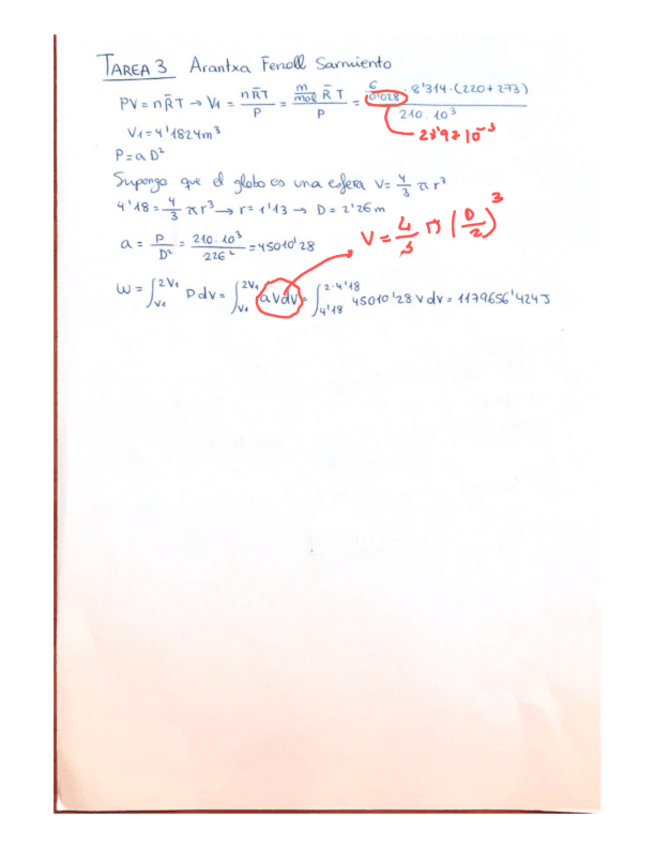 TAREA 3 Arantxa Fenoll Sarmiento
PV = nR̄T → V₁ = nR̄T/P = (m/mol R̄ T)/P = (6/0'028 · 8'314 · (220+273))/(210·10³)
28'97 10⁻³
V₁ = 4'1824 m³
P = a D²
Supongo que el globo es una esfera V = 4/3 π r³
4'18 = 4/3 π r³ → r = 1'13 → D = 2'26 m
V = 4/3 π (D/2)³
a = P/D² = 210·10³/226² = 45010'28
W = ∫_{V₁}^{2V₁} P dV = ∫_{V₁}^{2V₁} a V dV = ∫_{4'18}^{2·4'18} 45010'28 V dV = 1179656'424 J